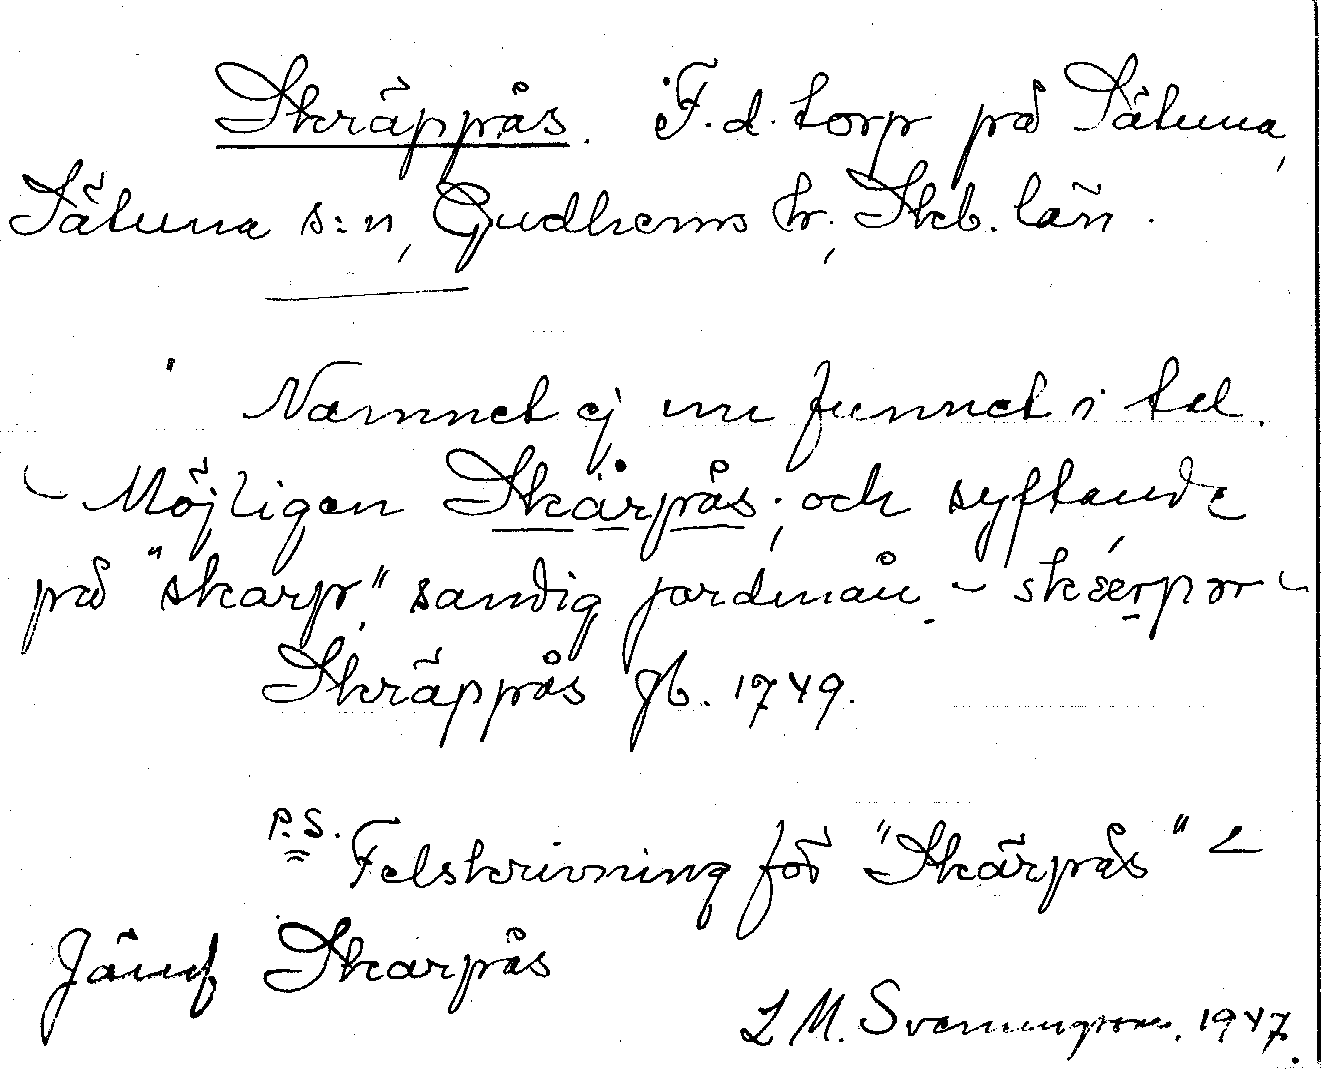 Skräppås. F.d. torp på Sätuna,
Sätuna s:n, Gudhems hr., Skb. län.
Namnet ej nu funnet i tal.
– Möjligen Skärpås; och syftande
på "skarp," sandig jordmån – skærpәr –
Skräppås jb. 1749.
P.S. Felskrivning för "Skärpås" <
Jämf Skarpås
L M. Svenungsson. 1947.